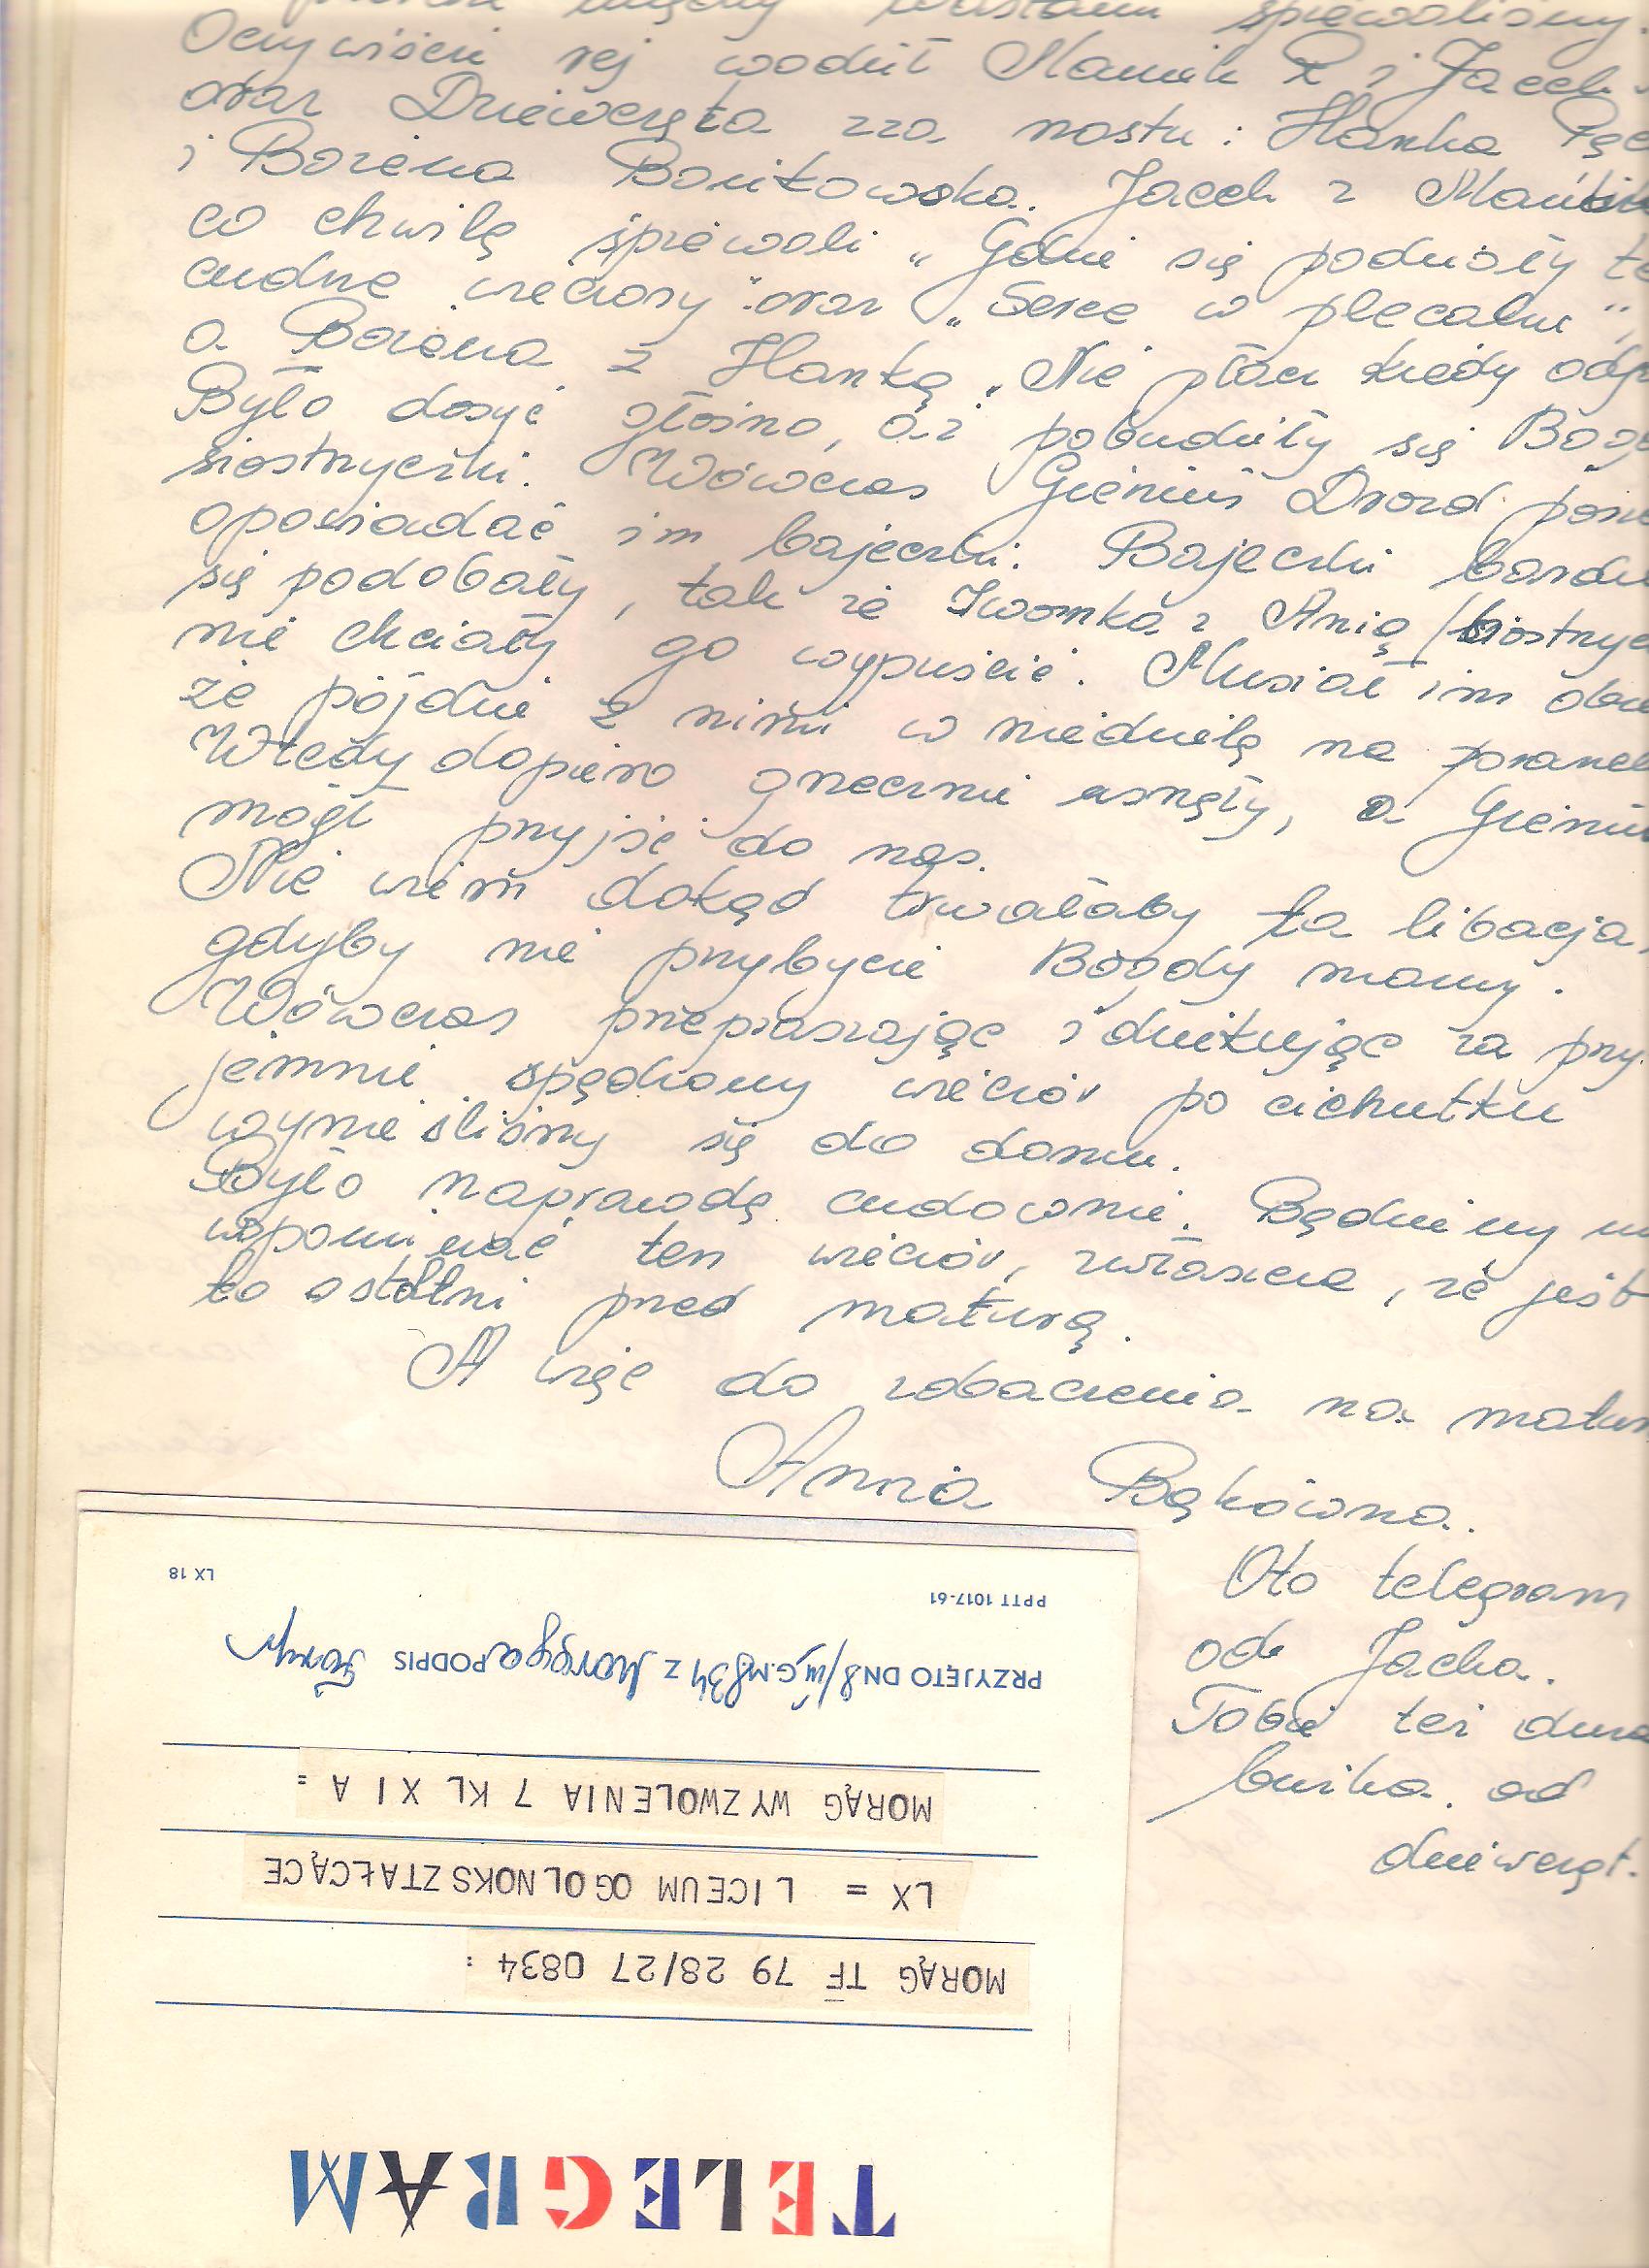 śpiewaliśmy.
Oczywiście rej wodził Maniek R i Jacek
oraz Dziewczęta zza mostu: Hanka
i Bożena Bonikowska. Jacek z
co chwilę śpiewali „Gdzie się podziały te
cudne wieczory" oraz „Serce w plecaku",
a Bożena z Hanką „Nie płacz kiedy odj
Było dosyć głośno, aż pobudziły się Bog
siostrzyczki. Wówczas Gieniuś Drozd
opowiadać im bajeczki. Bajeczki bardz
się podobały, tak że Iwonka z Anią /siostrzy
nie chciały go wypuścić. Musiał im obie
że pójdzie z nimi w niedzielę na poranek
Wtedy dopiero grzecznie usnęły, a Gieniuś
mógł przyjść do nas.
Nie wiem dokąd trwałaby ta libacja,
gdyby nie przybycie Bogdy mamy.
Wówczas przepraszając i dziękując za przy-
jemnie spędzony wieczór po cichutku
wynieśliśmy się do domu.
Było naprawdę cudownie. Będziemy
wspominać ten wieczór, zwłaszcza, że jest
to ostatni przed maturą.
A więc do zobaczenia na matur
Anna Bąkówna.
Oto telegram
od Jacka.
Tobie też duża
buźka od
dziewcząt.
TELEGRAM
MORĄG TF 79 28/27 0834 :
LX = LICEUM OGOLNOKSZTAŁCĄCE
MORĄG WYZWOLENIA 7 KL XI A =
PRZYJĘTO DN 8/III G.M. 834 Z PODPIS
PPTT 1017-61 LX 18